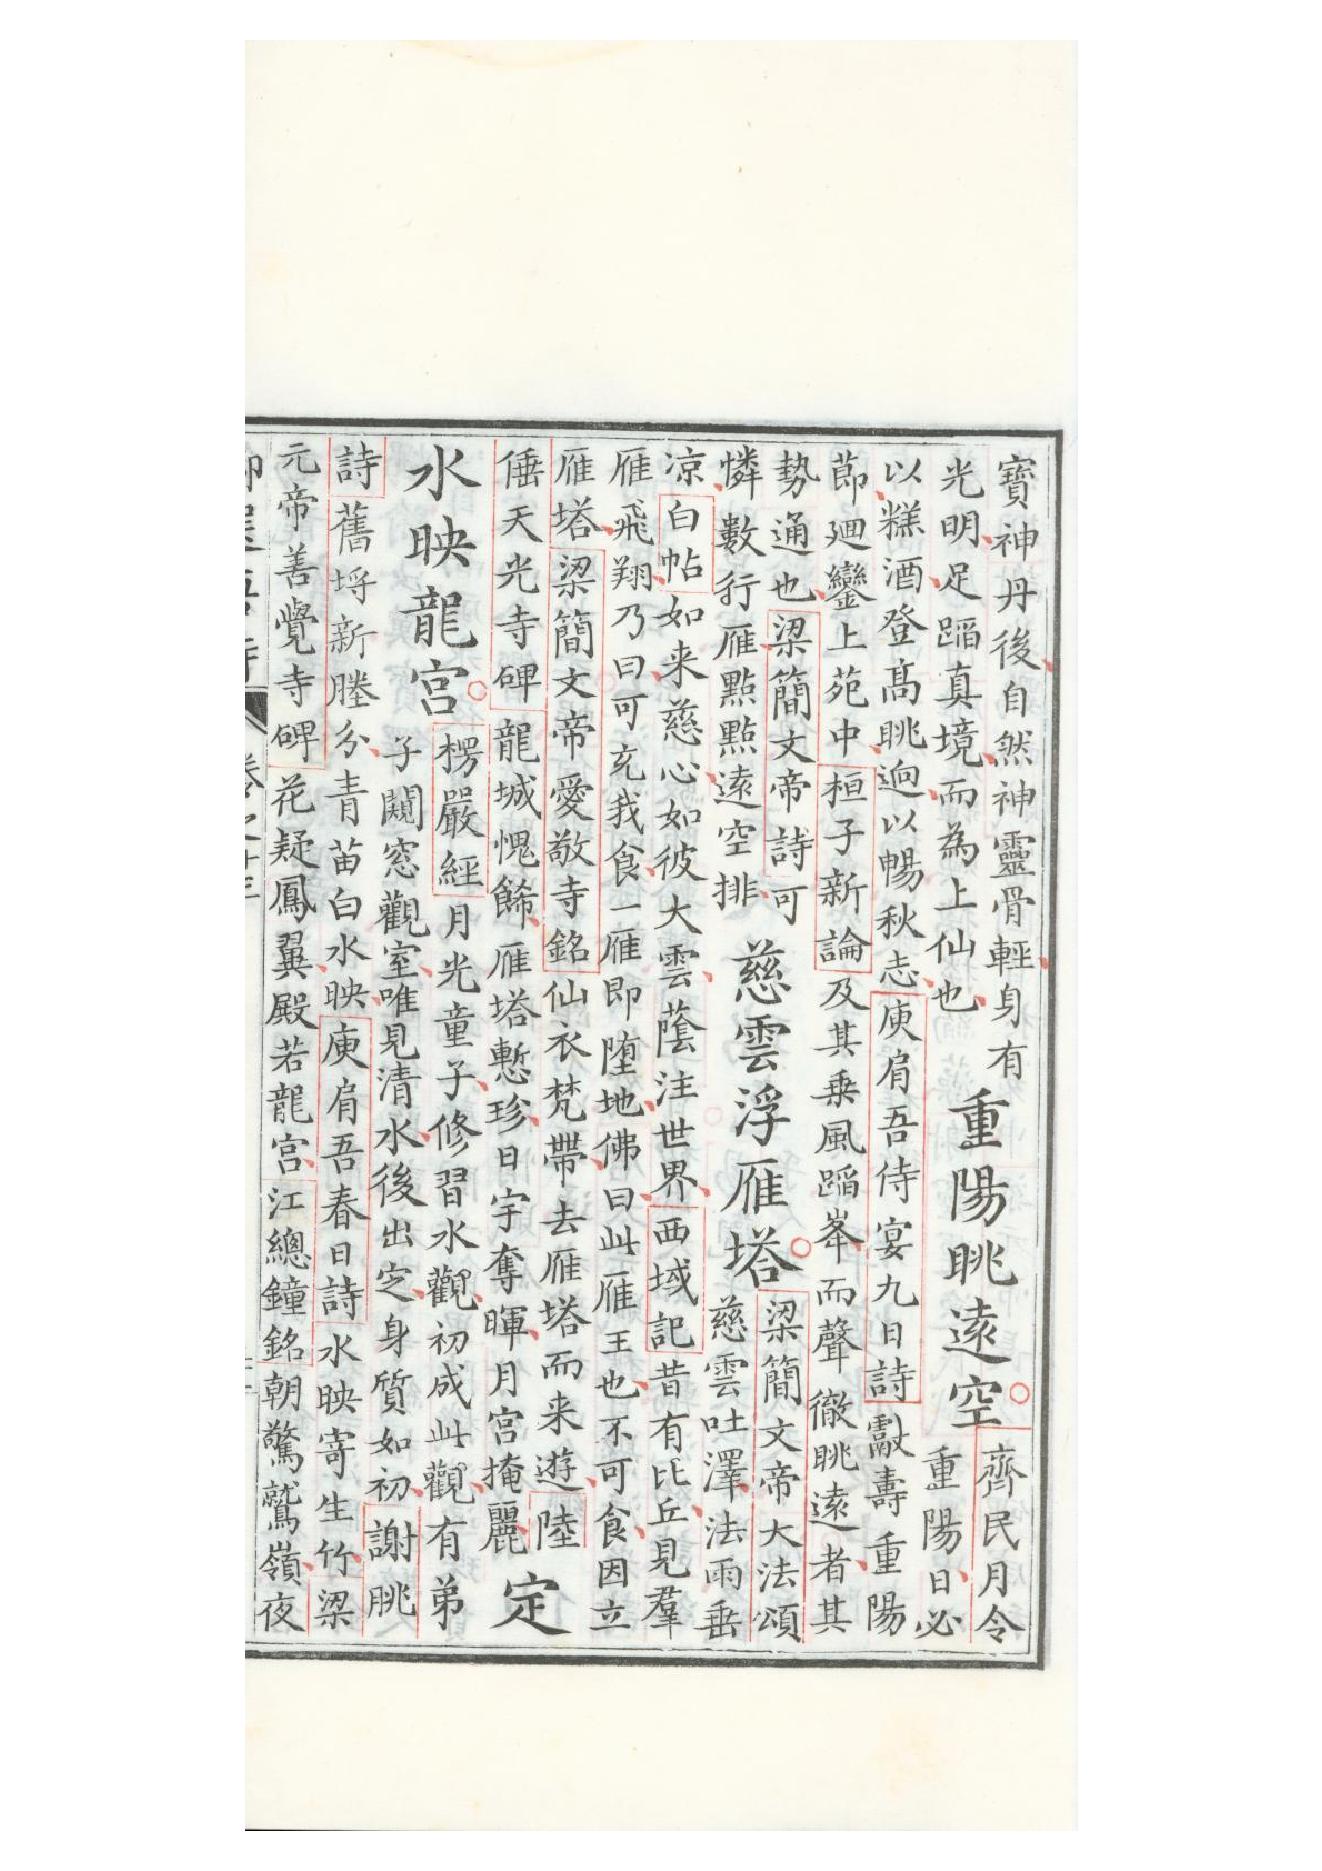 寶神丹後自然神靈骨輕身有
光明足蹈真境而為上仙也
重陽眺遠空
齊民月令
重陽日必
以糕酒登高眺迥以暢秋志庾肩吾侍宴九日詩獻壽重陽
節廻鑾上苑中桓子新論及其乗風蹈峯而聲徹眺遠者其
勢通也梁簡文帝詩可
憐數行雁點點遠空排
慈雲浮雁塔
梁簡文帝大法頌
慈雲吐澤法雨垂
凉白帖如来慈心如彼大雲蔭注世界西域記昔有比丘見羣
雁飛翔乃曰可充我食一雁即墮地佛曰此雁王也不可食因立
雁塔梁簡文帝愛敬寺銘仙衣梵帶去雁塔而来遊陸
倕天光寺碑龍城愧餙雁塔慙珍日宇奪暉月宫掩麗
定
水映龍宫
楞嚴經月光童子修習水觀初成此觀有弟
子闚窓觀室唯見清水後出定身質如初謝眺
詩舊埒新塍分青苗白水映庾肩吾春日詩水映寄生竹梁
元帝善覺寺碑花疑鳳翼殿若龍宫江總鐘銘朝驚鷲嶺夜